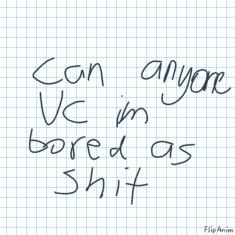 can anyone
VC im
bored as
shit
FlipAnim